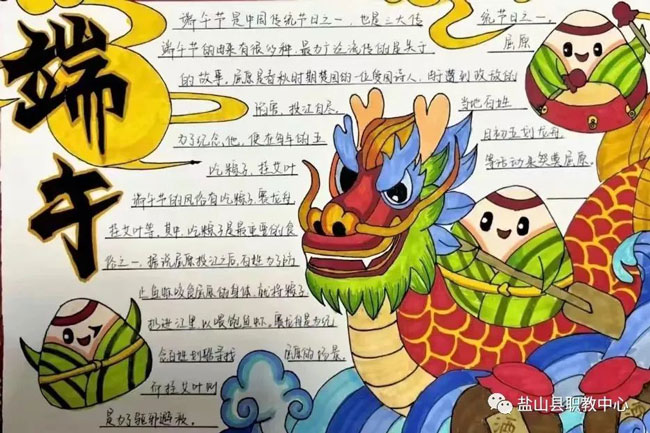 端午
端午节是中国传统节日之一，也是三大传统节日之一，
端午节的由来有很多种，最为广泛流传的是关于屈原
的故事，屈原是春秋时期楚国的一位爱国诗人，由于遭到政敌的
陷害，投江自尽，当地百姓
为了纪念他，便在每年的五月初五划龙舟
吃粽子，挂艾叶等活动来祭奠屈原。
端午节的风俗有吃粽子赛龙舟
挂艾叶等，其中，吃粽子是最重要的食
俗之一，据说屈原投江之后，百姓为了防
止鱼虾咬食屈原的身体，就将粽子
扔进江里以喂饱鱼虾，赛龙舟是为纪
念百姓划船寻找屈原的场景，
而挂艾叶则
是为了驱邪避秽。
酒
酒
盐山县职教中心